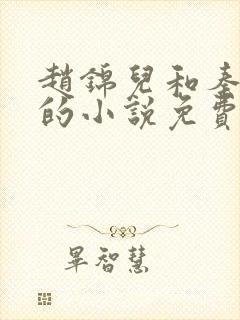 趙錦兒和秦
的小說免費
畢智慧